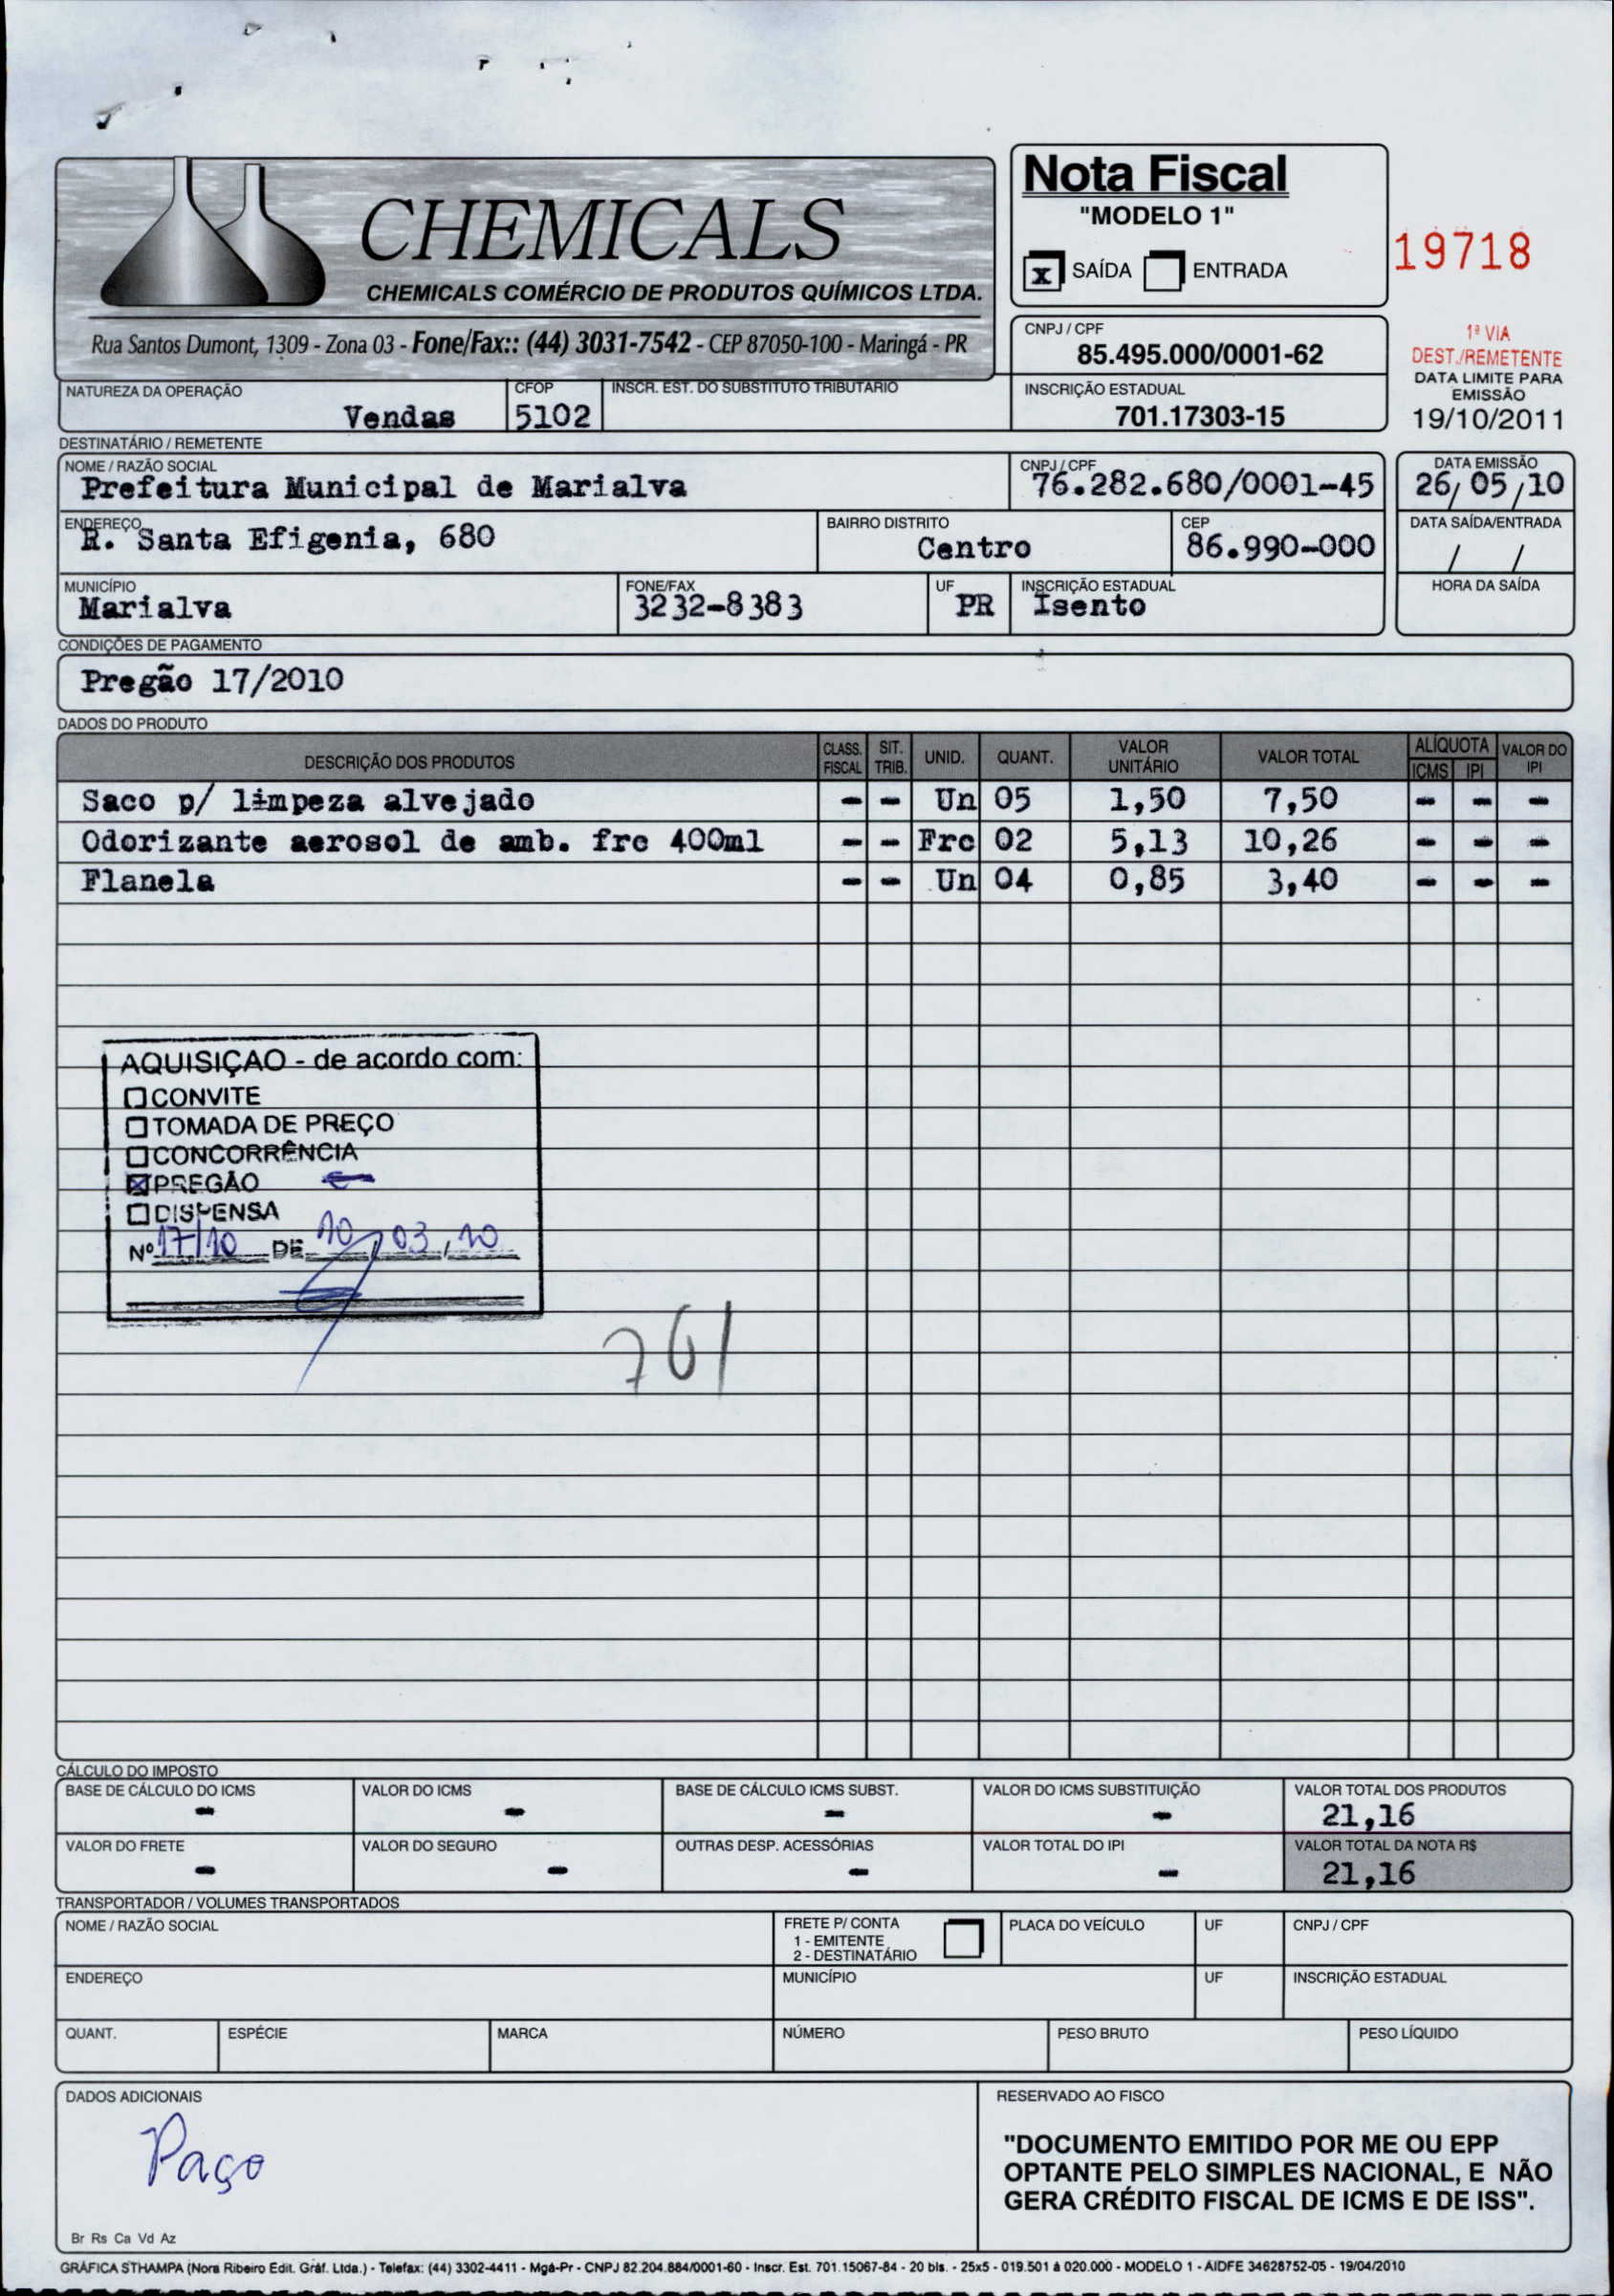 CHEMICALS
CHEMICALS COMÉRCIO DE PRODUTOS QUÍMICOS LTDA.
Rua Santos Dumont, 1309 - Zona 03 - Fone/Fax:: (44) 3031-7542 - CEP 87050-100 - Maringá - PR
Nota Fiscal
"MODELO 1"
X SAÍDA ENTRADA
19718
CNPJ / CPF
85.495.000/0001-62
1ª VIA
DEST./REMETENTE
DATA LIMITE PARA
EMISSÃO
19/10/2011
NATUREZA DA OPERAÇÃO CFOP INSCR. EST. DO SUBSTITUTO TRIBUTÁRIO INSCRIÇÃO ESTADUAL
Vendas 5102 701.17303-15
DESTINATÁRIO / REMETENTE
NOME / RAZÃO SOCIAL CNPJ / CPF DATA EMISSÃO
Prefeitura Municipal de Marialva 76.282.680/0001-45 26/05/10
ENDEREÇO BAIRRO DISTRITO CEP DATA SAÍDA/ENTRADA
R. Santa Efigenia, 680 Centro 86.990-000 / /
MUNICÍPIO FONE/FAX UF INSCRIÇÃO ESTADUAL HORA DA SAÍDA
Marialva 3232-8383 PR Isento
CONDIÇÕES DE PAGAMENTO
Pregão 17/2010
DADOS DO PRODUTO
DESCRIÇÃO DOS PRODUTOS CLASS. FISCAL SIT. TRIB. UNID. QUANT. VALOR UNITÁRIO VALOR TOTAL ALÍQUOTA ICMS IPI VALOR DO IPI
Saco p/ limpeza alvejado - - Un 05 1,50 7,50 - - -
Odorizante aerosol de amb. frc 400ml - - Frc 02 5,13 10,26 - - -
Flanela - - Un 04 0,85 3,40 - - -
AQUISIÇAO - de acordo com:
CONVITE
TOMADA DE PREÇO
CONCORRÊNCIA
PREGÃO
DISPENSA
Nº 17/10 DE 10/03/10
761
CÁLCULO DO IMPOSTO
BASE DE CÁLCULO DO ICMS VALOR DO ICMS BASE DE CÁLCULO ICMS SUBST. VALOR DO ICMS SUBSTITUIÇÃO VALOR TOTAL DOS PRODUTOS
- - - - 21,16
VALOR DO FRETE VALOR DO SEGURO OUTRAS DESP. ACESSÓRIAS VALOR TOTAL DO IPI VALOR TOTAL DA NOTA R$
- - - - 21,16
TRANSPORTADOR / VOLUMES TRANSPORTADOS
NOME / RAZÃO SOCIAL FRETE P/ CONTA PLACA DO VEÍCULO UF CNPJ / CPF
1 - EMITENTE
2 - DESTINATÁRIO
ENDEREÇO MUNICÍPIO UF INSCRIÇÃO ESTADUAL
QUANT. ESPÉCIE MARCA NÚMERO PESO BRUTO PESO LÍQUIDO
DADOS ADICIONAIS RESERVADO AO FISCO
Pago
"DOCUMENTO EMITIDO POR ME OU EPP
OPTANTE PELO SIMPLES NACIONAL, E NÃO
GERA CRÉDITO FISCAL DE ICMS E DE ISS".
Br Rs Ca Vd Az
GRÁFICA STHAMPA (Nora Ribeiro Edit. Gráf. Ltda.) - Telefax: (44) 3302-4411 - Mgá-Pr - CNPJ 82.204.884/0001-60 - Inscr. Est. 701.15067-84 - 20 bls. - 25x5 - 019.501 à 020.000 - MODELO 1 - AIDFE 34628752-05 - 19/04/2010